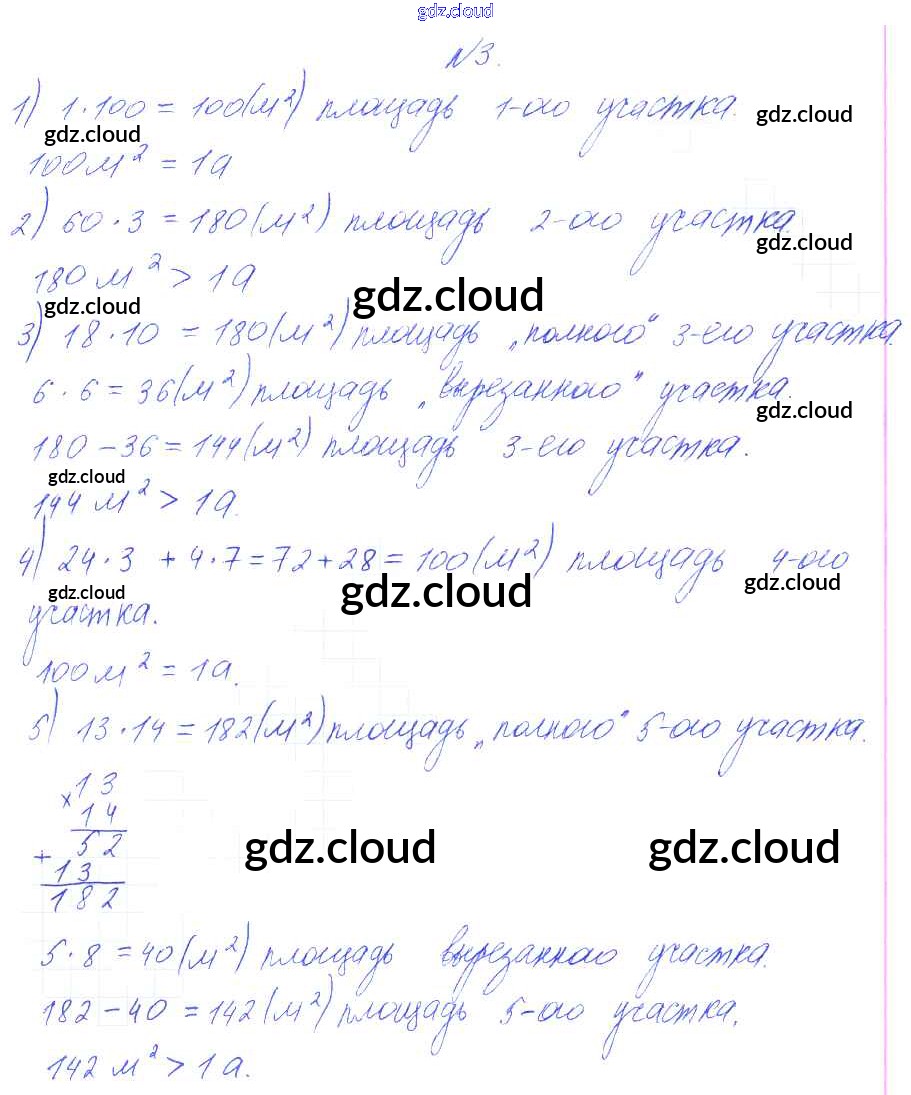 gdz.cloud
№3.
1) 1·100 = 100(м²) площадь 1-ого участка.
gdz.cloud gdz.cloud
100м² = 1а
2) 60·3 = 180(м²) площадь 2-ого участка.
gdz.cloud
180 м² > 1а
gdz.cloud gdz.cloud
3) 18·10 = 180(м²) площадь „полного“ 3-его участка.
6·6 = 36(м²) площадь „вырезанного” участка.
gdz.cloud
180 – 36 = 144(м²) площадь 3-его участка.
gdz.cloud
144 м² > 1а.
4) 24·3 + 4·7 = 72 + 28 = 100(м²) площадь 4-ого
gdz.cloud gdz.cloud gdz.cloud
участка.
100м² = 1а.
5) 13·14 = 182(м²) площадь „полного” 5-ого участка.
×13
14
+ 52
13
182
gdz.cloud gdz.cloud
5·8 = 40(м²) площадь вырезанного участка.
182 – 40 = 142(м²) площадь 5-ого участка.
142 м² > 1а.